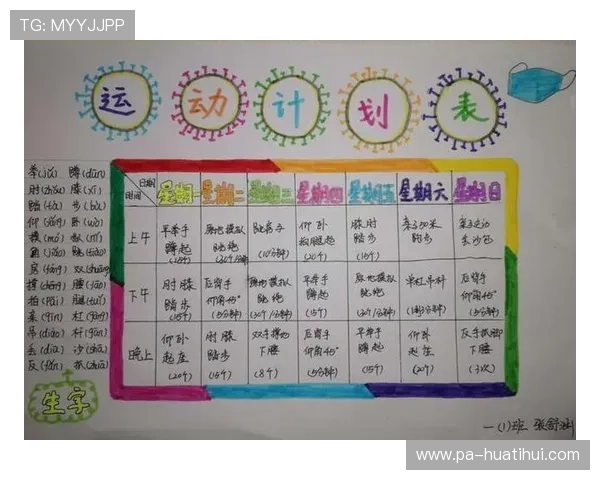 TG: MYYJJPP
运动计划表
日期
时间
星期一 星期二 星期三 星期四 星期五 星期六 星期日
上午
平举手 原地模拟 跳房子 仰卧 膝肘 亲子50米 亲子运动
蹲起 跳绳 抬腿起 踏步 跑步 丢沙包
(15个) (30个/1分钟) (10分钟) (20个) (15个)
下午
肘膝 后背手 原地模拟 平举手 原地模拟 吊杠吊杆 后背手
踏步 仰角45° 跳绳 蹲起 跳绳 仰角45°
(15个) (5分钟) (30个/1分钟) (15个) (30个/1分钟) (5分钟)
晚上
仰卧 肘膝 双手撑地 后背手 平举手 仰卧 反手抓脚
起座 踏步 下腰 仰角45° 蹲起 起座 下腰
(20个) (15个) (8个) (5分钟) (15个) (20个) (3次)
举(jǔ) 蹲(dūn)
肘(zhǒu) 膝(xī)
踏(tà) 步(bù)
仰(yǎng) 卧(wò)
模(mó) 拟(nǐ)
角(jiǎo) 跳(tiào)
房(fáng) 双(shuāng)
撑(chēng) 腰(yāo)
抬(tái) 腿(tuǐ)
亲(qīn) 杠(gàng)
吊(diào) 杆(gān)
丢(diū) 沙(shā)
反(fǎn) 抓(zhuā)
生字
一(1)班 张舒涵
www.pa-huatihui.com